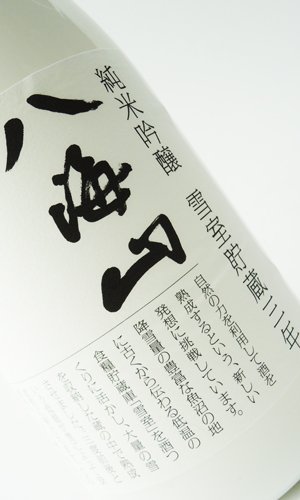 八海山
純米吟醸 雪室貯蔵三年
自然の力を利用して酒を
熟成するという、新しい
発想に挑戦しています。
降雪量の豊富な魚沼の地
に古くから伝わる低温の
食糧貯蔵庫「雪室」を酒つ
くりに活かし、大量の雪